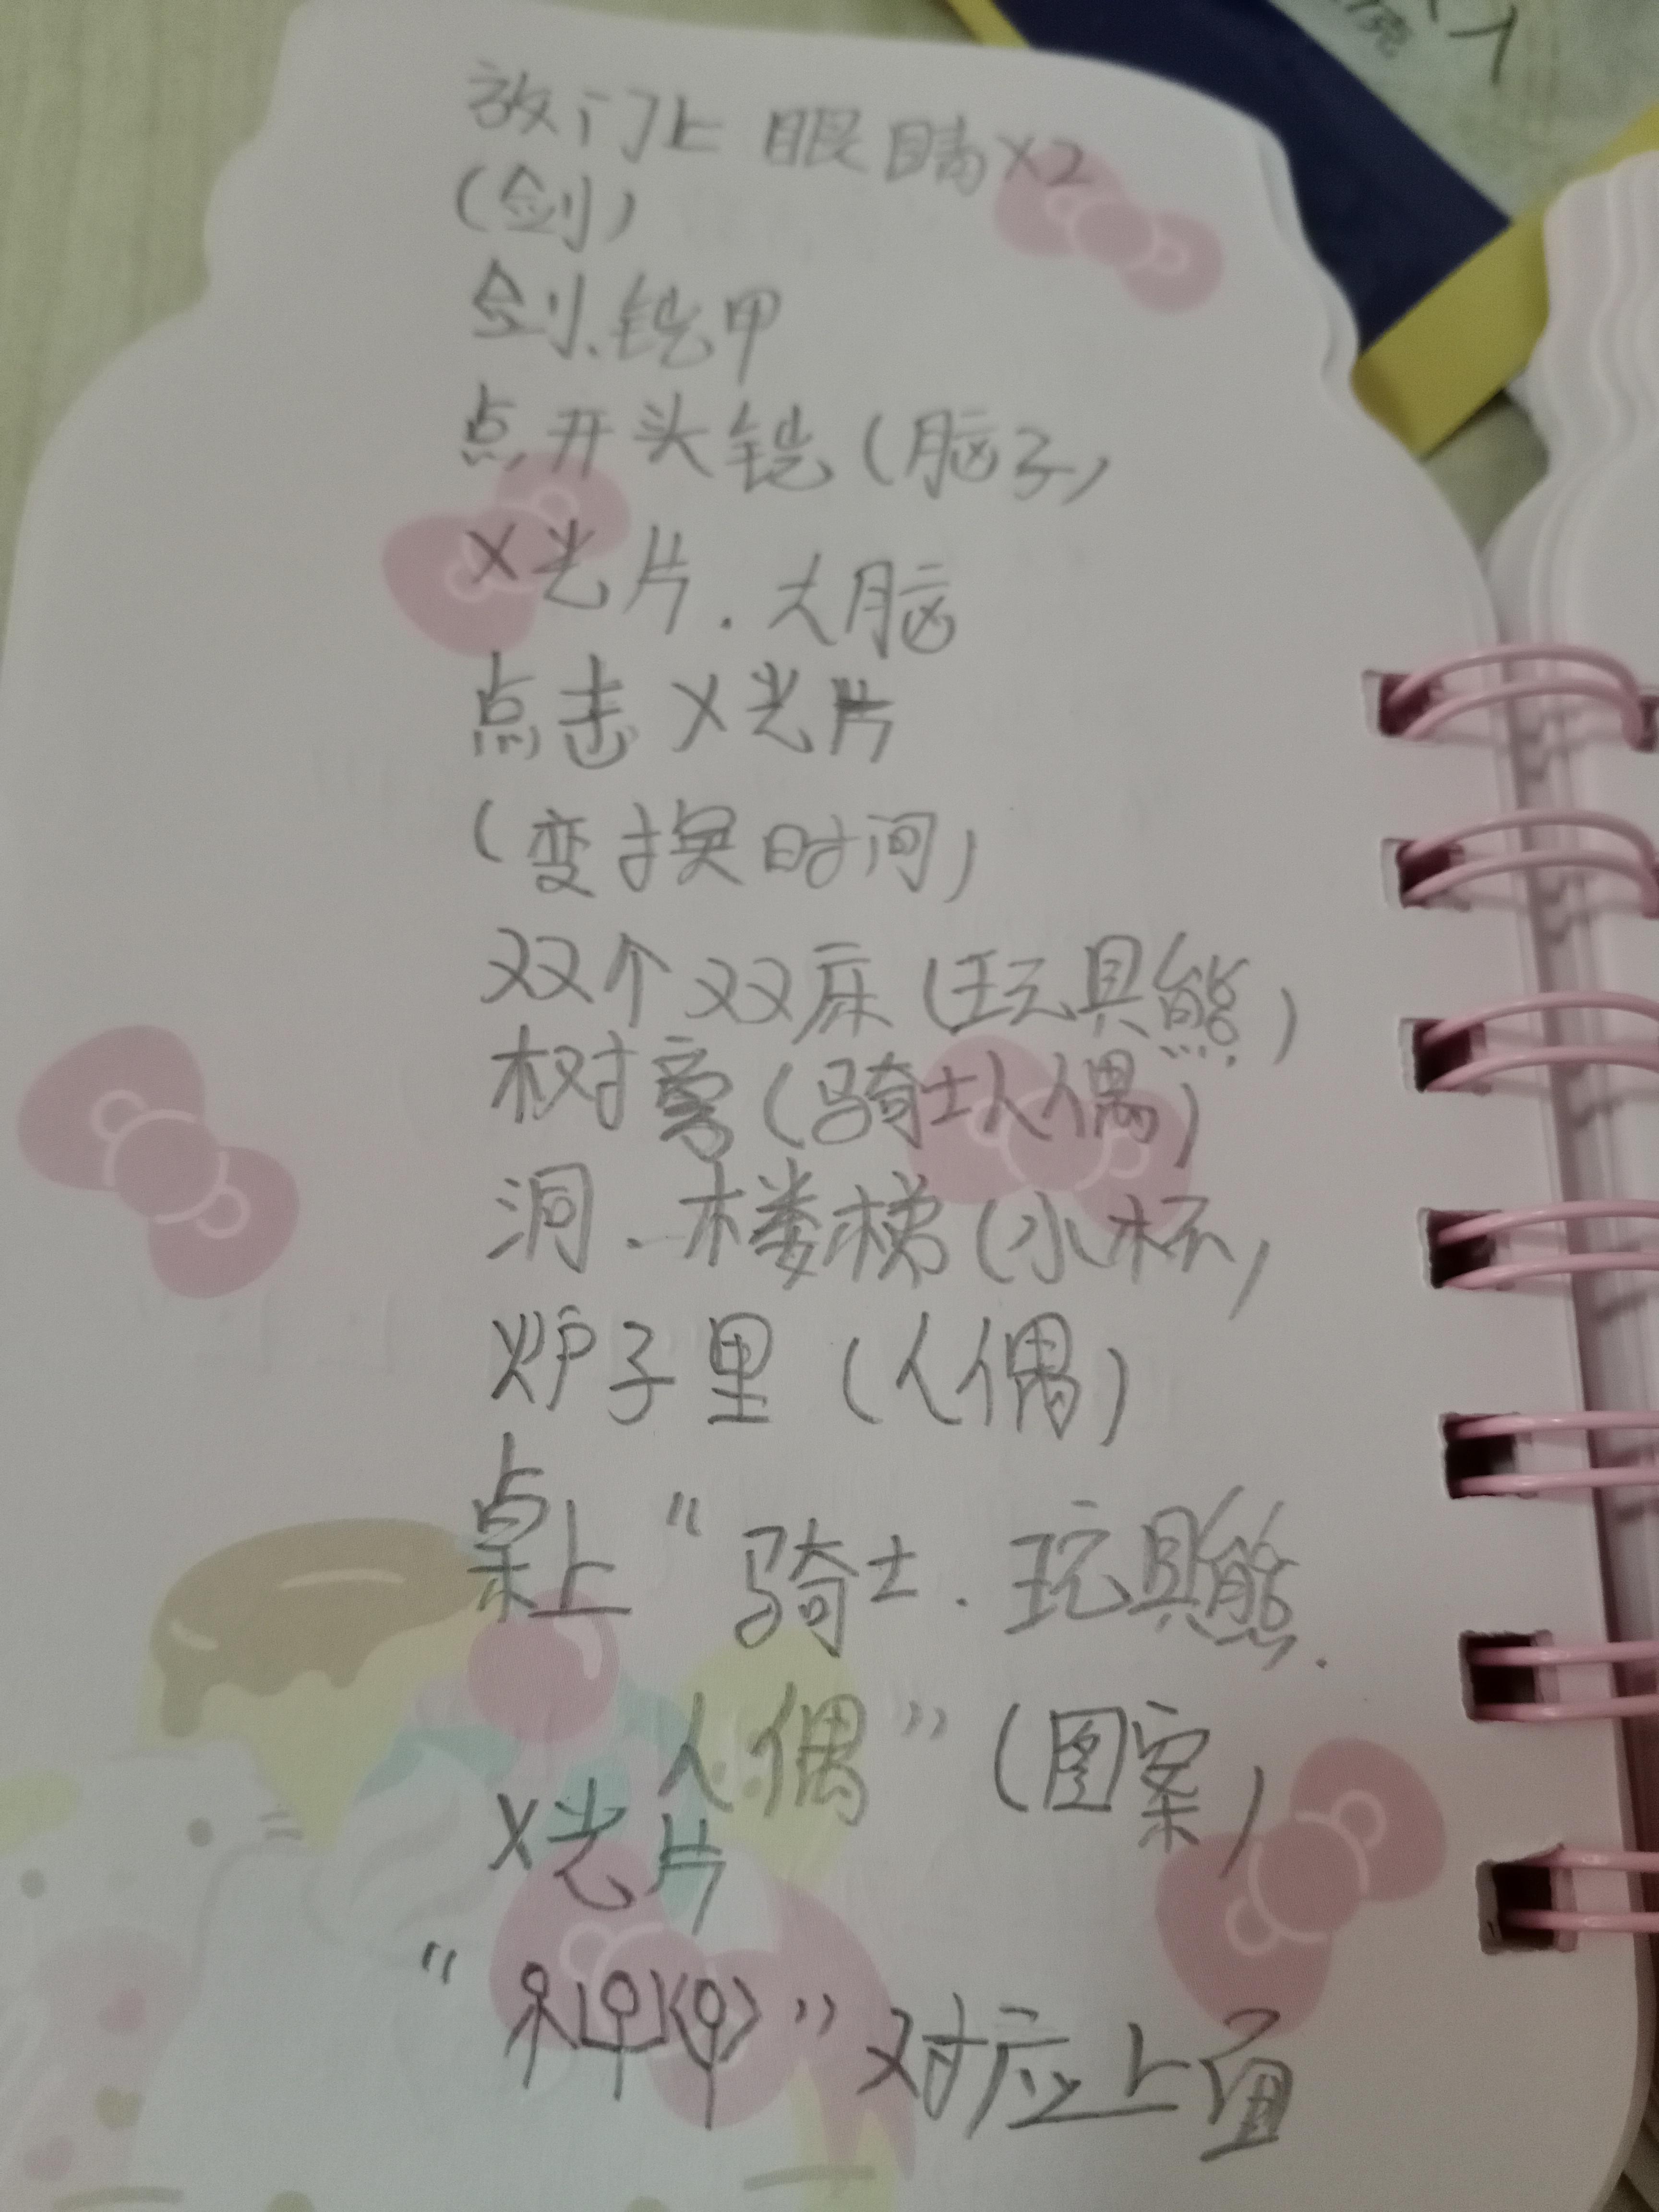 放门上 眼睛X2
(剑)
剑.铠甲
点开头铠(脑子)
X光片.大脑
点击X光片
(变换时间)
双个双床(玩具熊)
树旁(骑士人偶)
洞.楼梯(水杯)
炉子里(人偶)
桌上“骑士.玩具熊.
人偶”(图案)
X光片
“ ”对应上面